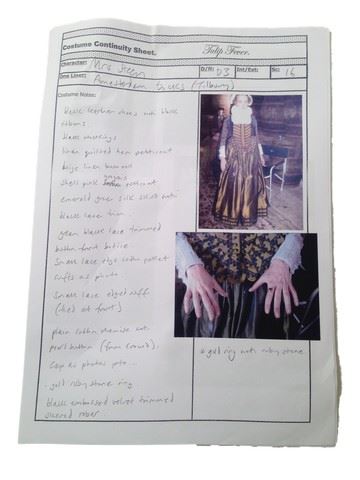 Costume Continuity Sheet.
Tulip Fever.
Character: Mrs Steen
D/N: D3
Int/Ext:
Sc: 16
One Liner: Amsterdam Docks (Tilbury)
Costume Notes:
black leather shoes with black
ribbons
black stockings
linen quilted hem petticoat
beige linen bumroll
shell pink petticoat
emerald green silk skirt with
black lace trim
green black lace trimmed
button front bodice
Small lace edge cotton
cuffs as photo
Small lace edged ruff
(ties at front)
plain cotton chemise with
pearl button (from crowd).
Cap as photos pto...
- gold ruby stone ring
black embossed velvet trimmed
sleeved robe.
* gold ring with ruby stone